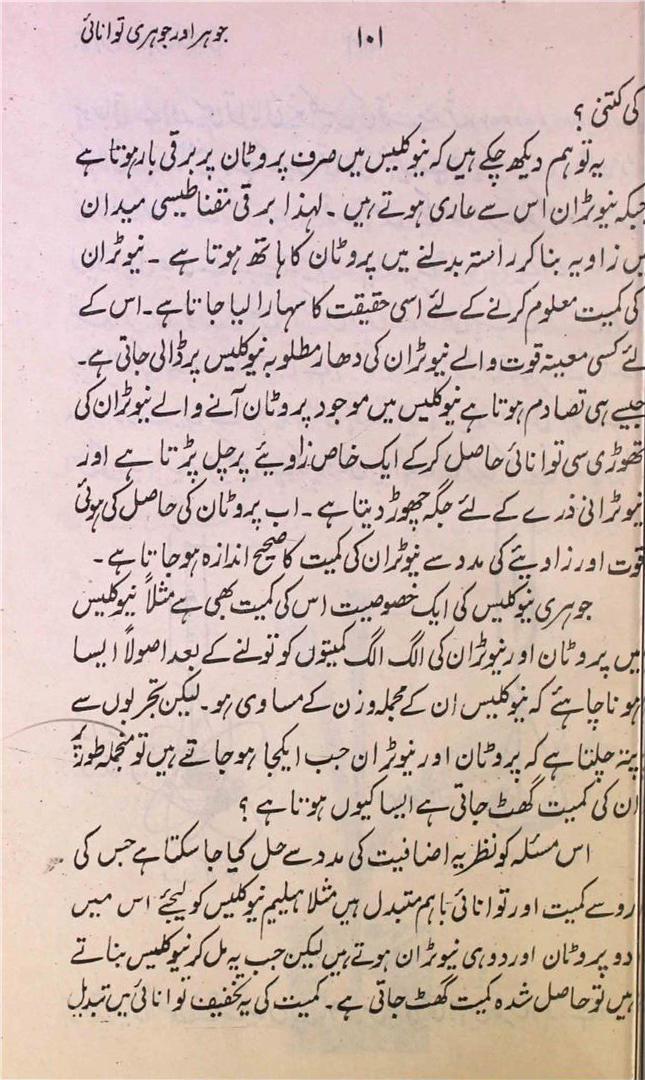 جوہر اور جوہری توانائی
۱۰۱
کی کتنی ؟
یہ تو ہم دیکھ چکے ہیں کہ نیوکلیس میں صرف پروٹان پر برقی بار ہوتا ہے
جبکہ نیوٹران اس سے عاری ہوتے ہیں ۔ لہذا برقی مقناطیسی میدان
میں زاویہ بنا کر راستہ بدلنے میں پروٹان کا ہاتھ ہوتا ہے ۔ نیوٹران
کی کمیت معلوم کرنے کے لئے اسی حقیقت کا سہارا لیا جاتا ہے ۔ اس کے
لئے کسی معینہ قوت والے نیوٹران کی دھار مطلوبہ نیوکلیس پر ڈالی جاتی ہے ۔
جیسے ہی تصادم ہوتا ہے نیوکلیس میں موجود پروٹان آنے والے نیوٹران کی
تھوڑی سی توانائی حاصل کرکے ایک خاص زاویئے پر چل پڑتا ہے اور
نیوٹرانی ذرے کے لئے جگہ چھوڑ دیتا ہے ۔ اب پروٹان کی حاصل کی ہوئی
قوت اور زاویئے کی مدد سے نیوٹران کی کمیت کا صحیح اندازہ ہو جاتا ہے ۔
جوہری نیوکلیس کی ایک خصوصیت اس کی کمیت بھی ہے مثلاً نیوکلیس
میں پروٹان اور نیوٹران کی الگ الگ کمیتوں کو تولنے کے بعد اصولاً ایسا
ہونا چاہئے کہ نیوکلیس ان کے مجملہ وزن کے مساوی ہو ۔ لیکن تجربوں سے
پتہ چلتا ہے کہ پروٹان اور نیوٹران جب ایکجا ہو جاتے ہیں تو منجملہ طور پر
ان کی کمیت گھٹ جاتی ہے ایسا کیوں ہوتا ہے ؟
اس مسئلہ کو نظریہ اضافیت کی مدد سے حل کیا جا سکتا ہے جس کی
رو سے کمیت اور توانائی باہم متبدل ہیں مثلا ہیلیم نیوکلیس کو لیجئے اس میں
دو پروٹان اور دو ہی نیوٹران ہوتے ہیں لیکن جب یہ مل کر نیوکلیس بناتے
ہیں تو حاصل شدہ کمیت گھٹ جاتی ہے ۔ کمیت کی یہ تخفیف توانائی میں تبدیل